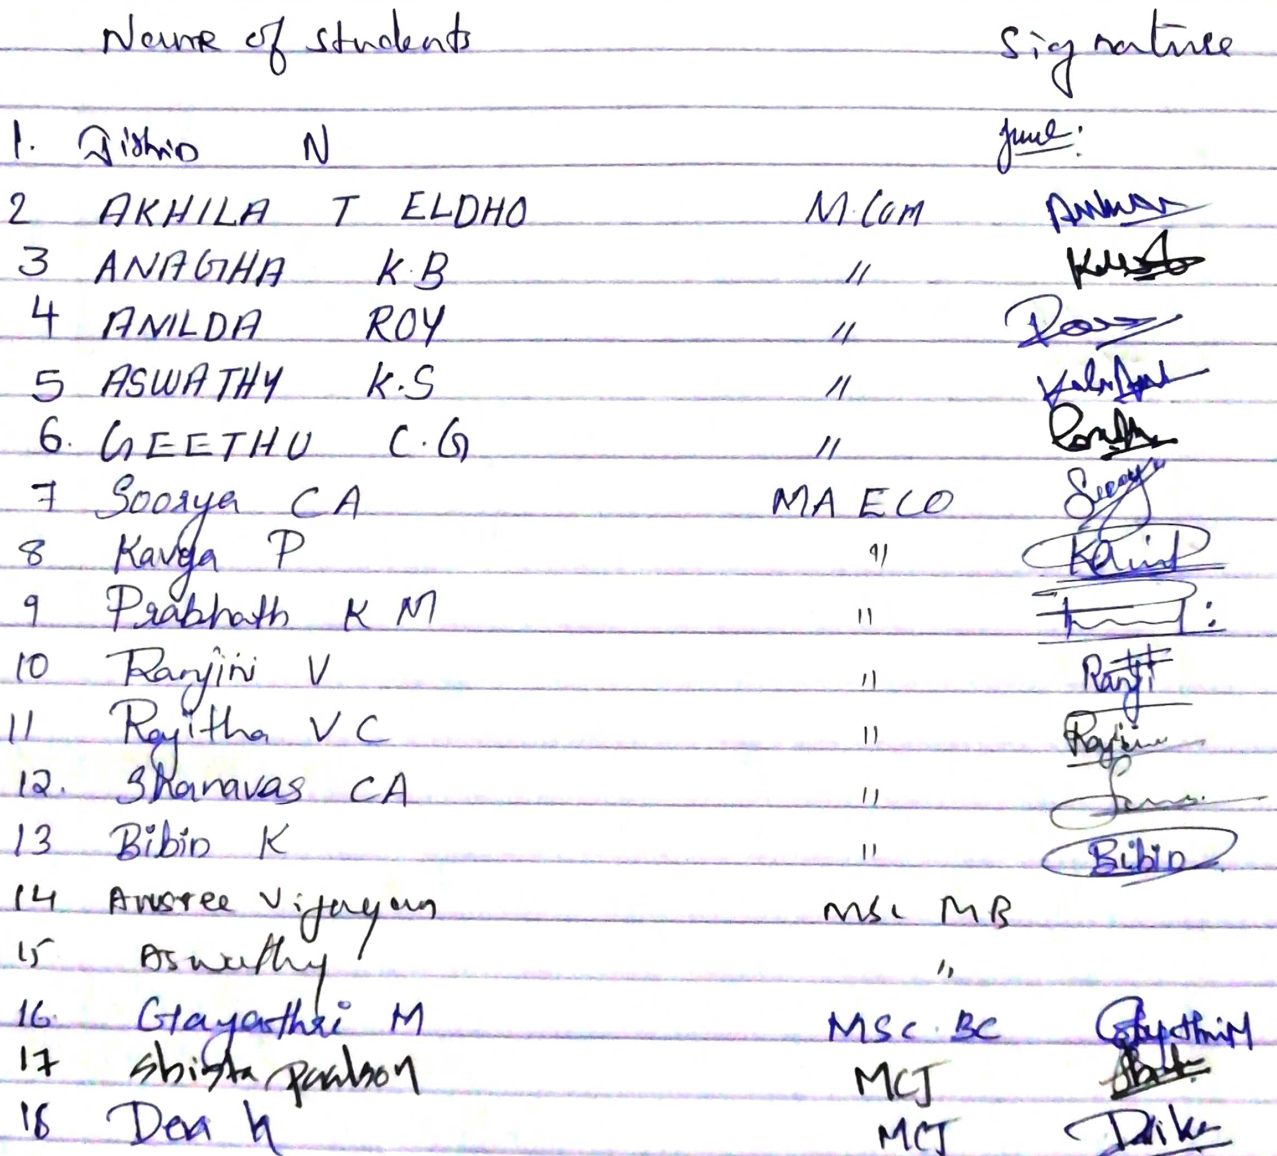 Name of students Signature
1. Jishin N
2 AKHILA T ELDHO M.Com
3 ANAGHA K.B "
4 ANILDA ROY "
5 ASWATHY K.S "
6. GEETHU C.G "
7 Soorya CA MA ECO
8 Kavya P "
9 Prabhath K M "
10 Ranjini V "
11 Rajitha V C "
12. Shanavas CA "
13 Bibin K " Bibin
14 Ansree Vijayan MSc MB
15 Aswathy "
16 Gayathri M MSc. BC Gayathri M
17 Paulson MCJ
18 Dea MCJ